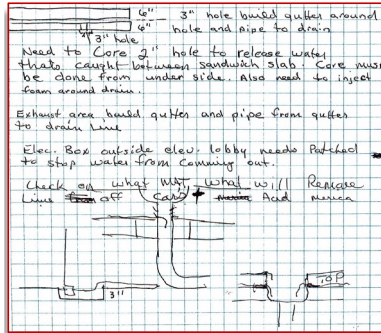 6" 3" hole build gutter around
6" hole and pipe to drain
3" hole
Need to Core 2" hole to release water
thats caught between sandwich slab. Core must
be done from under side. Also need to inject
foam around drain.
Exhaust area build gutter and pipe from gutter
to drain Line
Elec. Box outside elev. lobby needs Patched
to stop water from Comming out.
Check on what MAT what will Remove
Lime off Cars Acid
3"